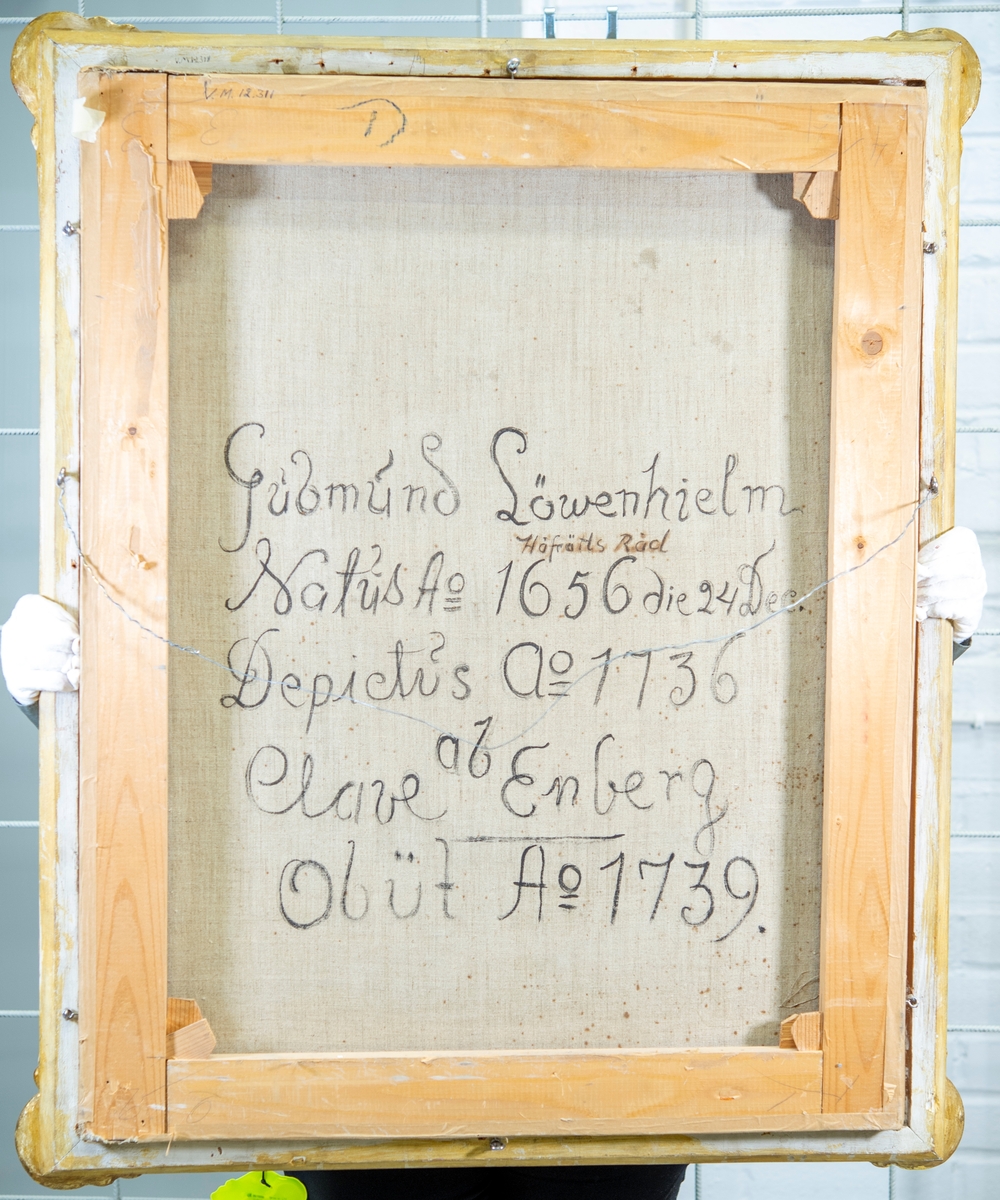 V.M. 12.311
D
Gúdmúnd Löwenhielm
Hofrätts Råd
Natús Aº 1656 die 24 Dec.
Depictús Aº 1736
ab
Clave Enberg
Obüt Aº 1739.